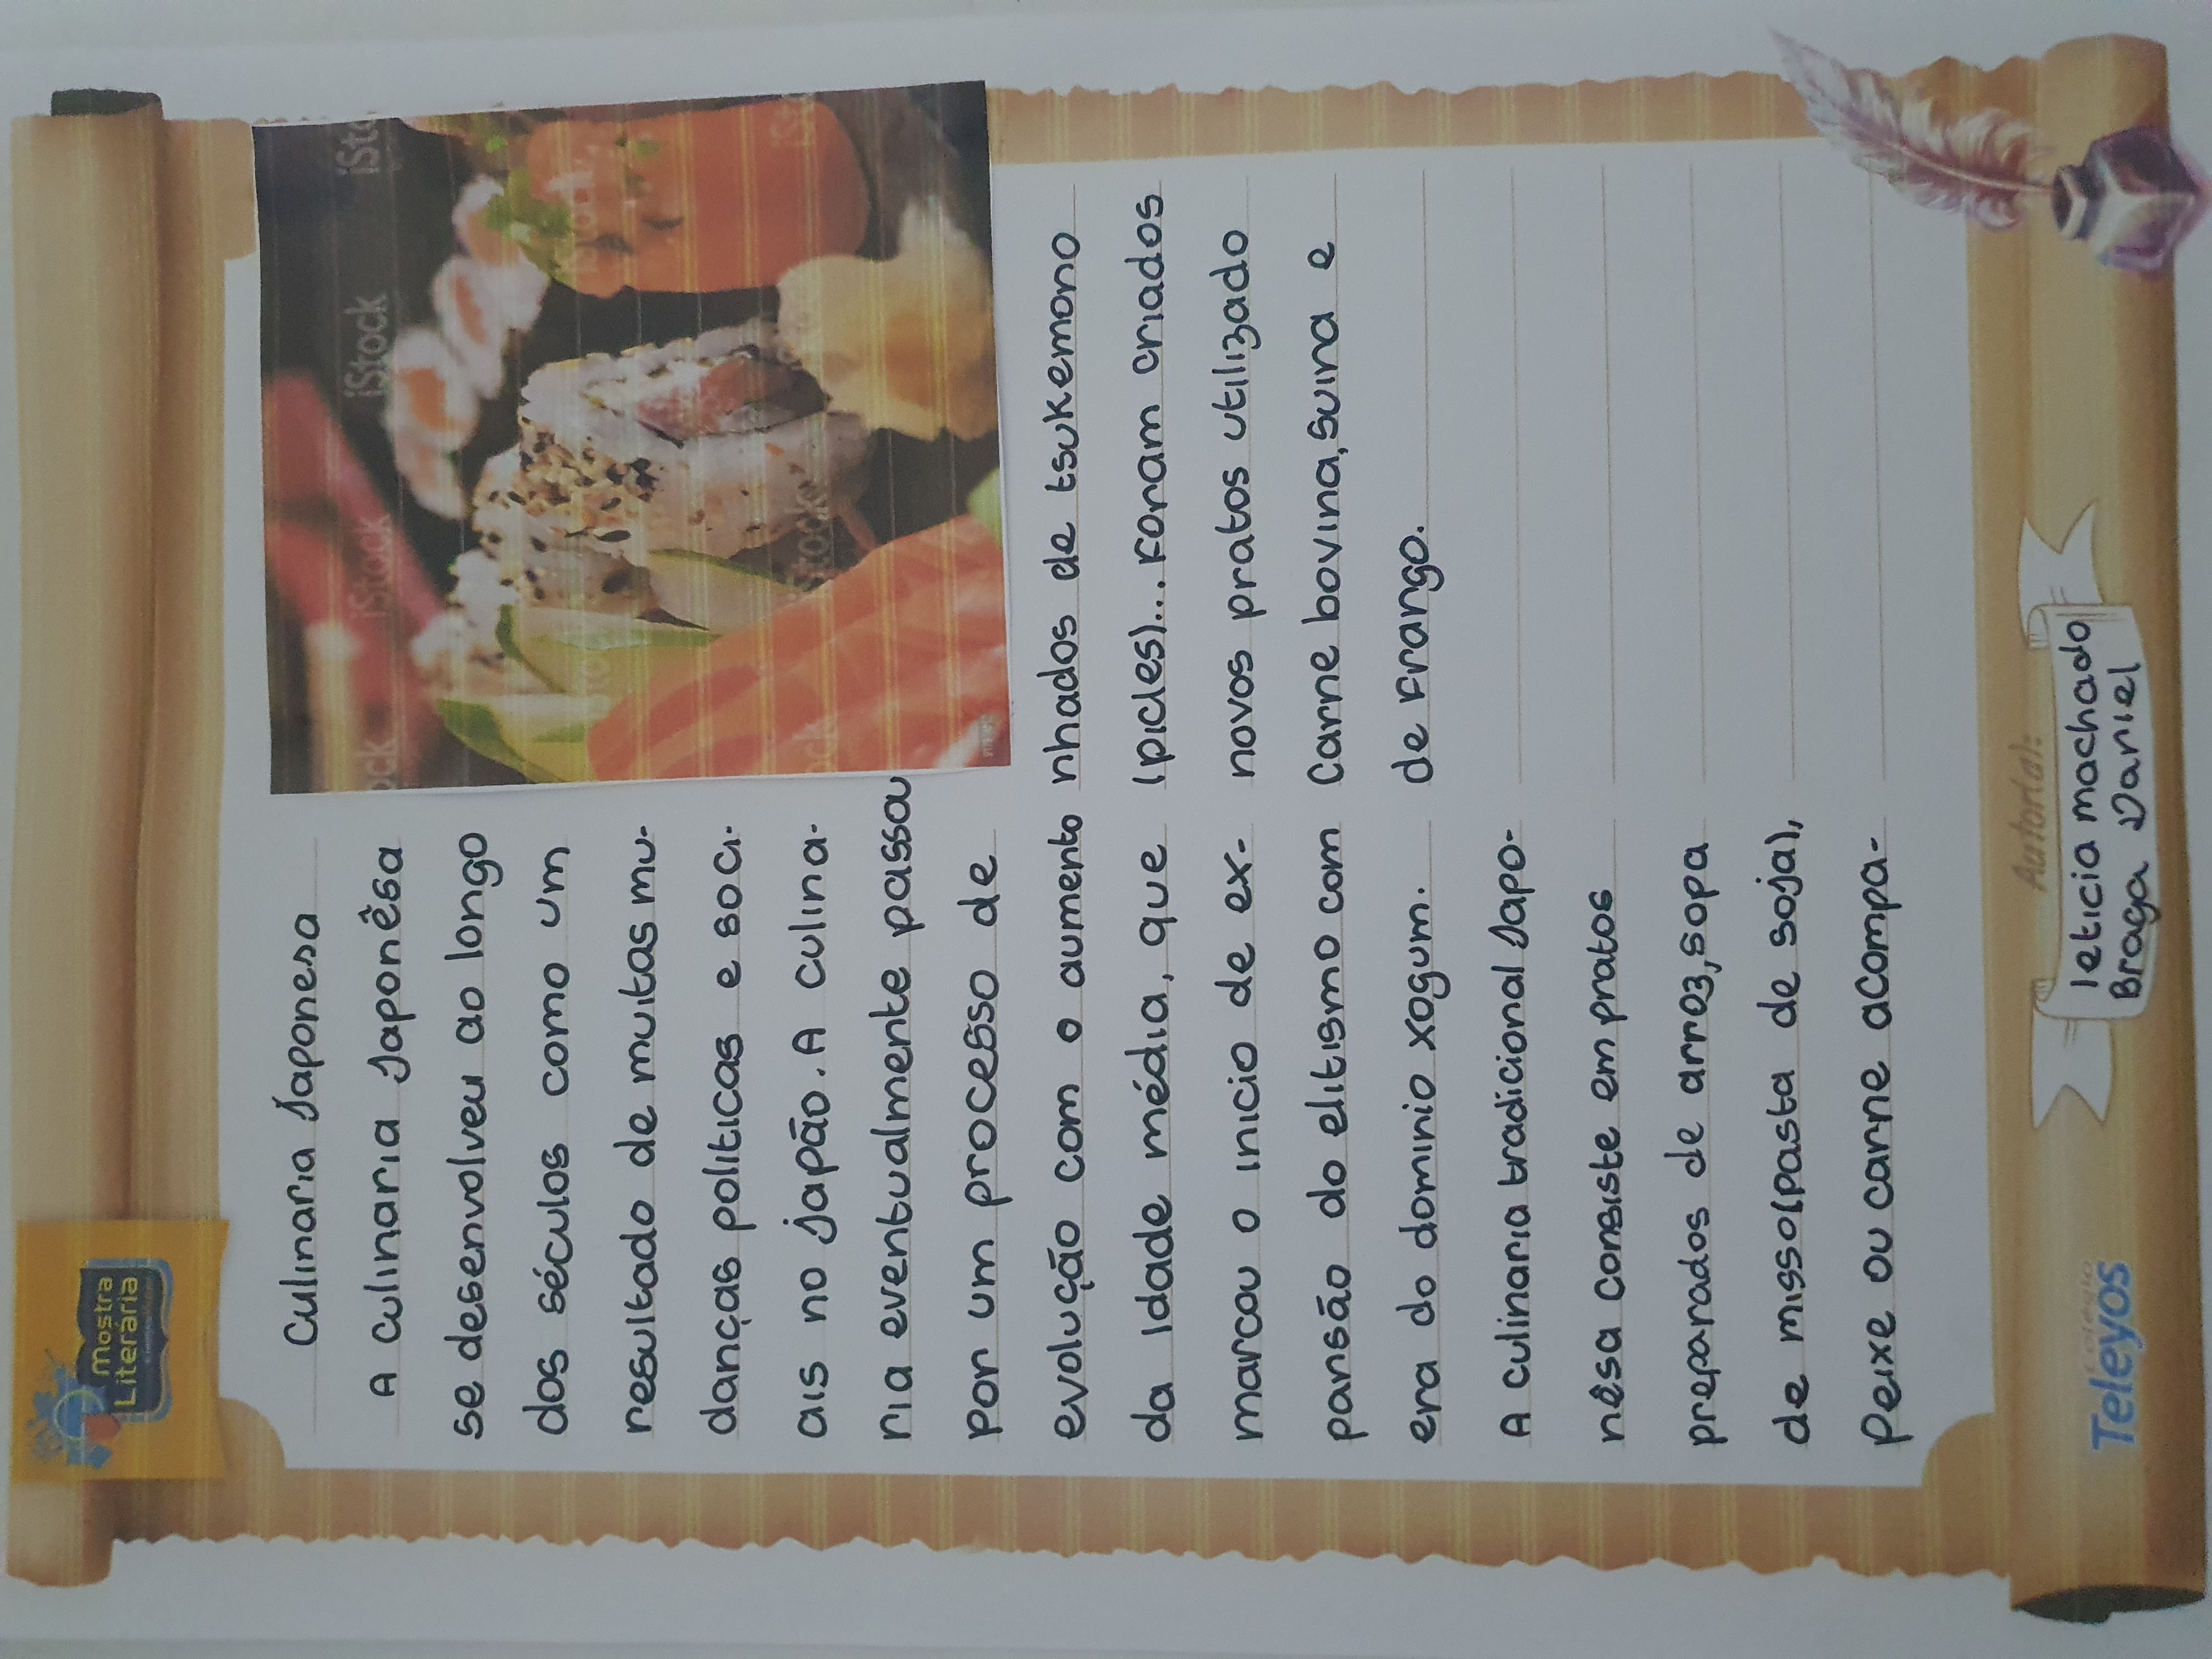 mostra
Literária
Culinaria Japonesa
A culinaria Japonêsa
se desenvolveu ao longo
dos séculos como um
resultado de muitas mu-
danças politicas e soci-
ais no japão. A culina-
ria eventualmente passou
por um processo de
evolução com o aumento
da Idade média, que
marcou o inicio de ex-
pansão do elitismo com
era do dominio xogum.
A culinaria tradicional Japo-
nêsa consiste em pratos
preparados de arroz, sopa
de misso(pasta de soja),
Peixe ou carne acompa-
iStock
iStock
iStock
nhados de tsukemono
(picles)... Foram criados
novos pratos utilizado
Carne bovina, suina e
de Frango.
Colégio
Teleyos
Autor(a):
leticia machado
Braga Daniel